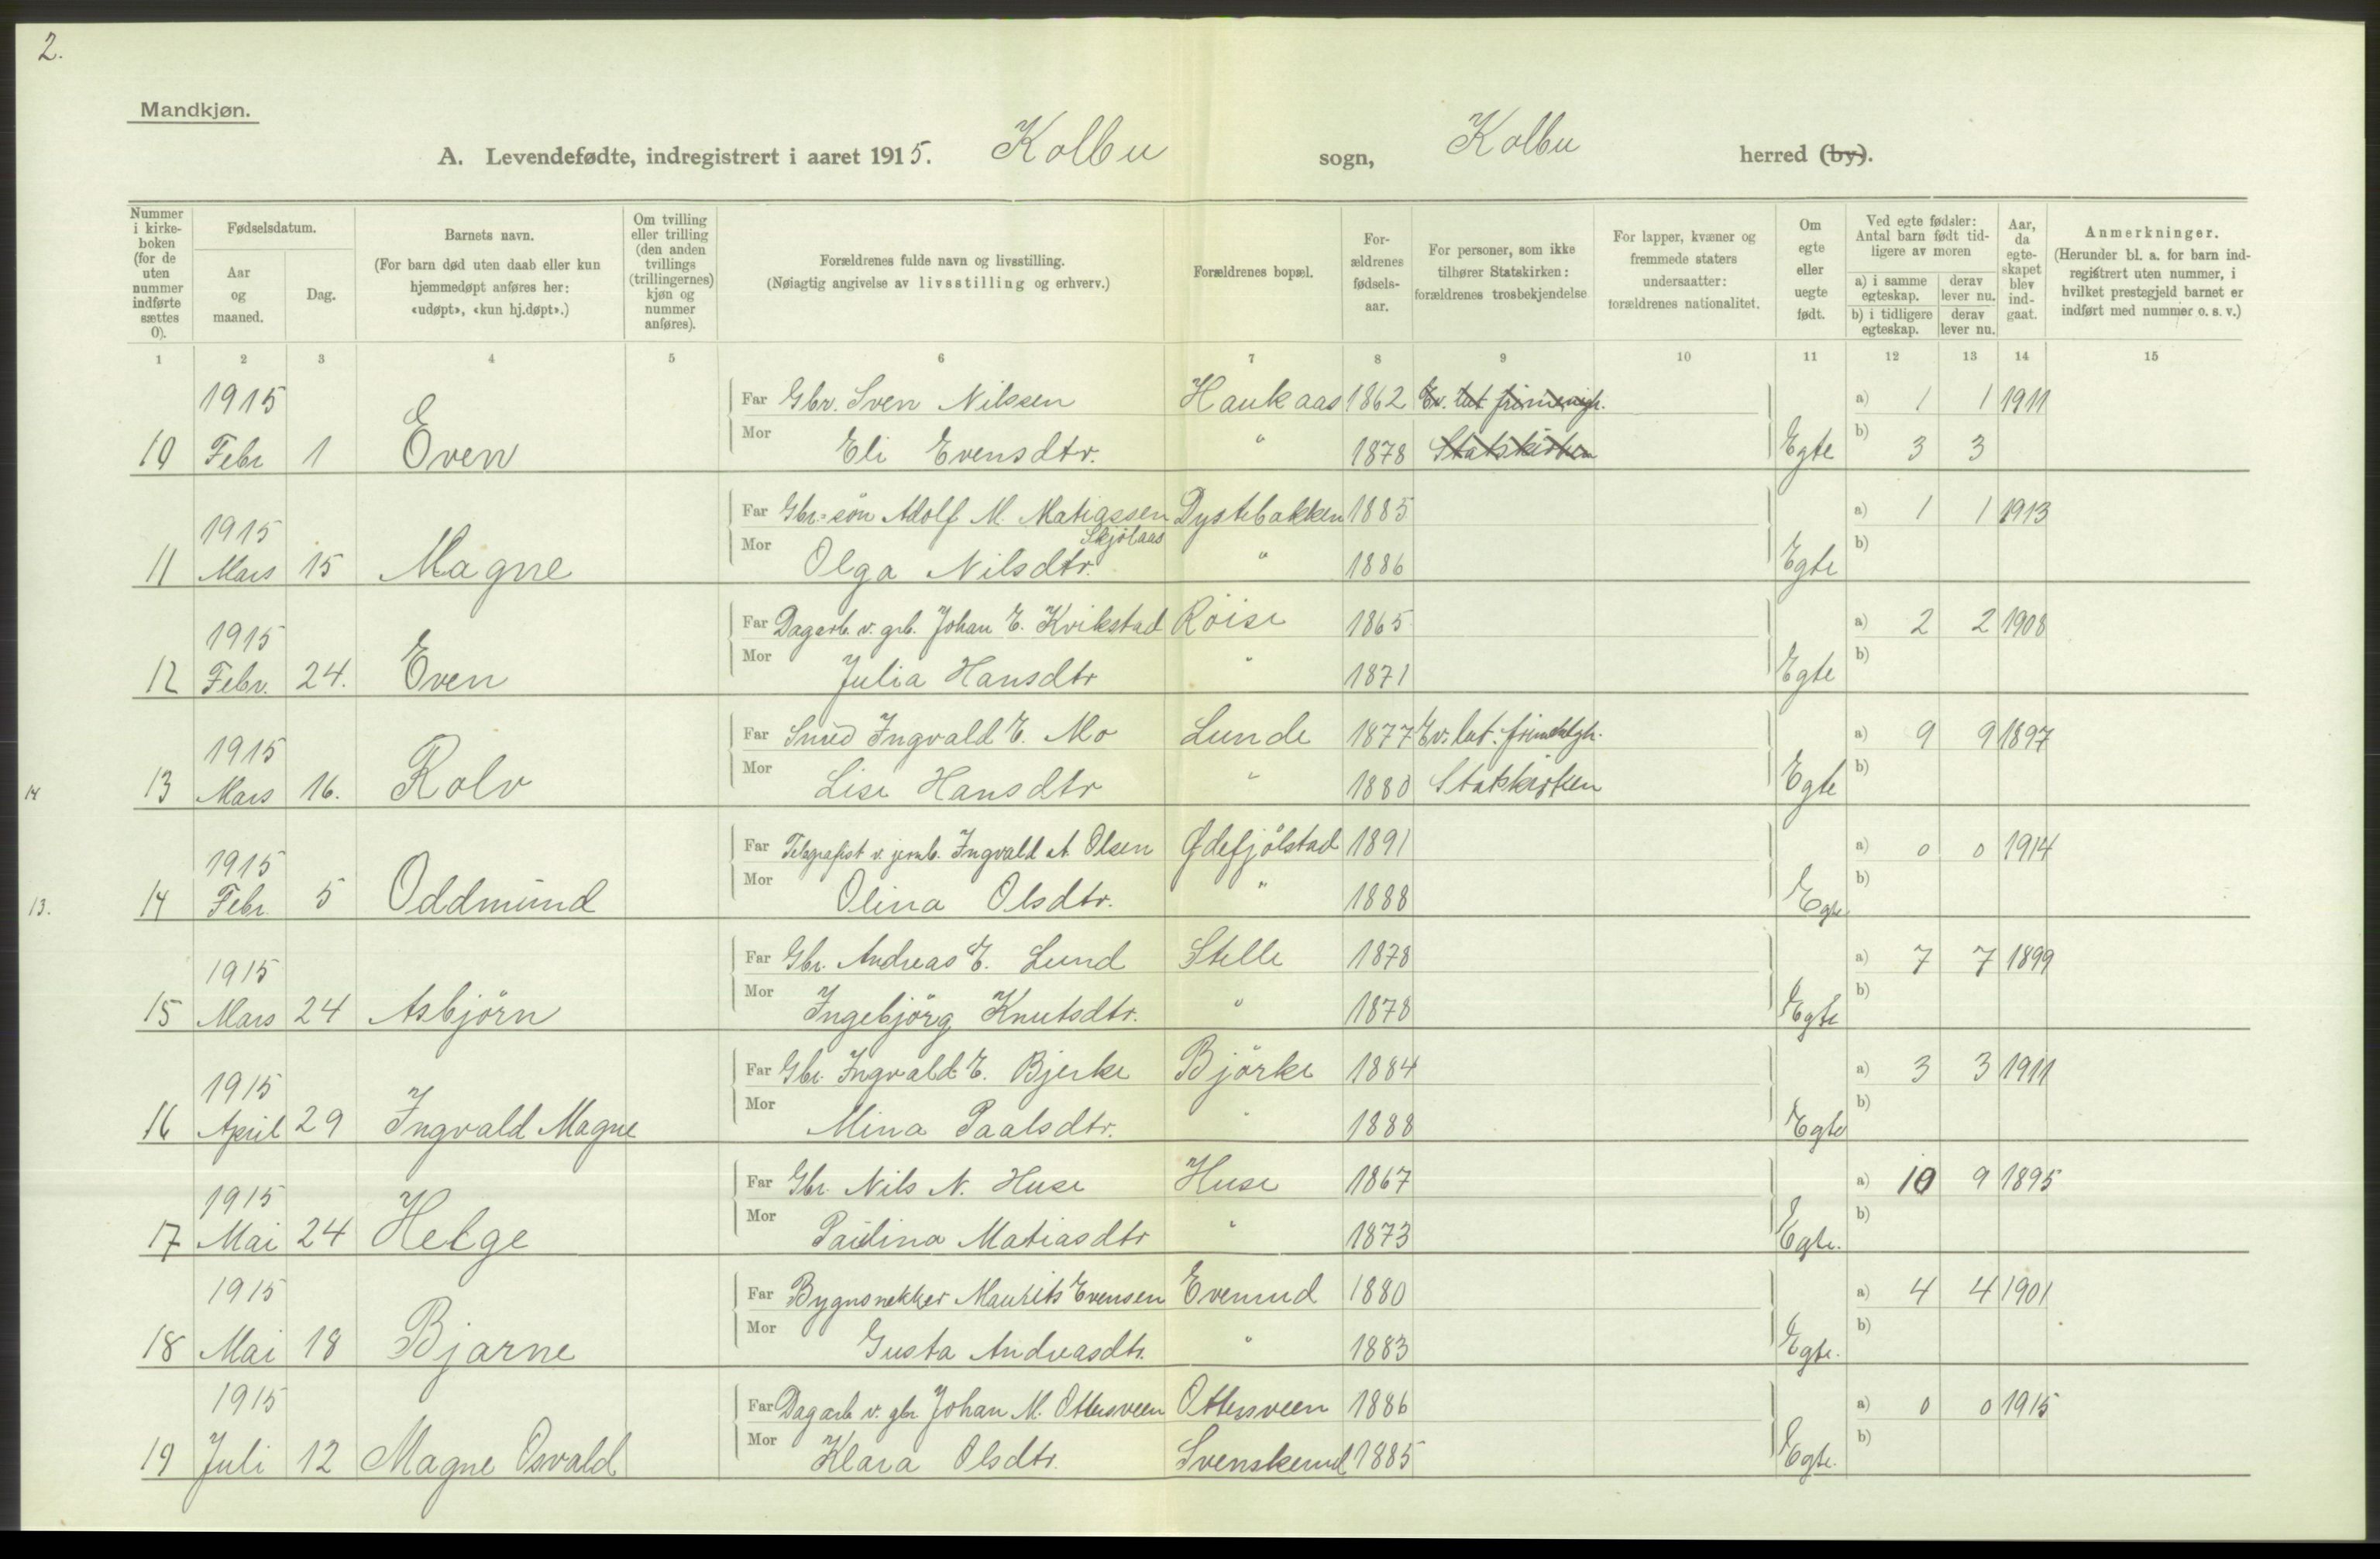 2.
Mandkjøn.
A. Levendefødte, indregistrert i aaret 1915. Kolbu sogn, Kolbu herred (by).
Nummer i kirkeboken (for de uten nummer indførte sættes 0).
Fødselsdatum.
Aar og maaned.
Dag.
Barnets navn.
(For barn død uten daab eller kun hjemmedøpt anføres her: «udøpt», «kun hj.døpt».)
Om tvilling eller trilling (den anden tvillings (trillingernes) kjøn og nummer anføres).
Forældrenes fulde navn og livsstilling.
(Nøiagtig angivelse av livsstilling og erhverv.)
Forældrenes bopæl.
Forældrenes fødselsaar.
For personer, som ikke tilhører Statskirken: forældrenes trosbekjendelse
For lapper, kvæner og fremmede staters undersaatter: forældrenes nationalitet.
Om egte eller uegte født.
Ved egte fødsler: Antal barn født tidligere av moren
a) i samme egteskap. derav lever nu.
b) i tidligere egteskap. derav lever nu.
Aar, da egteskapet blev indgaat.
Anmerkninger.
(Herunder bl. a. for barn indregistrert uten nummer, i hvilket prestegjeld barnet er indført med nummer o. s. v.)
1 2 3 4 5 6 7 8 9 10 11 12 13 14 15
1915 Far Gbr. Sven Nilssen Haukaas 1862 Ev. lut frimenigh. a) 1 1 1911
10 Febr 1 Even Mor Eli Evensdtr. " 1878 Statskirken Egte b) 3 3
1915 Far Gbr.søn Adolf M. Matiassen Dystebakken 1885 a) 1 1 1913
Skjölaas
11 Mars 15 Magne Mor Olga Nilsdtr. " 1886 Egte b)
1915 Far Dagarb. v. grb. Johan E. Kvikstad Röise 1865 a) 2 2 1908
12 Febr. 24. Even Mor Julia Hansdtr " 1871 Egte b)
1915 Far Smed Ingvald E. Mo Lunde 1877 Ev. lut. frimenigh. a) 9 9 1897
14 13 Mars 16. Rolv Mor Lise Hansdtr " 1880 Statskirken Egte b)
1915 Far Telegrafist v. jernb. Ingvald A. Olsen Ødefjölstad 1891 a) 0 0 1914
13. 14 Febr. 5 Oddmund Mor Olina Olsdtr. " 1888 Egte b)
1915 Far Gbr. Andreas E. Lund Stelle 1878 a) 7 7 1899
15 Mars 24 Asbjörn Mor Ingebjörg Knutsdtr. " 1878 Egte b)
1915 Far Gbr. Ingvald E. Bjerke Björke 1884 a) 3 3 1911
16 April 29 Ingvald Magne Mor Mina Paalsdtr. " 1888 Egte b)
1915 Far Gbr. Nils N. Huse Huse 1867 a) 10 9 1895
17 Mai 24 Helge Mor Paulina Matiasdtr " 1873 Egte. b)
1915 Far Bygnsnekker Maurits Evensen Evenrud 1880 a) 4 4 1901
18 Mai 18 Bjarne Mor Gusta Andreasdtr. " 1883 Egte. b)
1915 Far Dagarb v. gbr. Johan M. Ottersveen Ottersveen 1886 a) 0 0 1915
19 Juli 12 Magne Osvald Mor Klara Olsdtr. Svenskerud 1885 Egte. b)